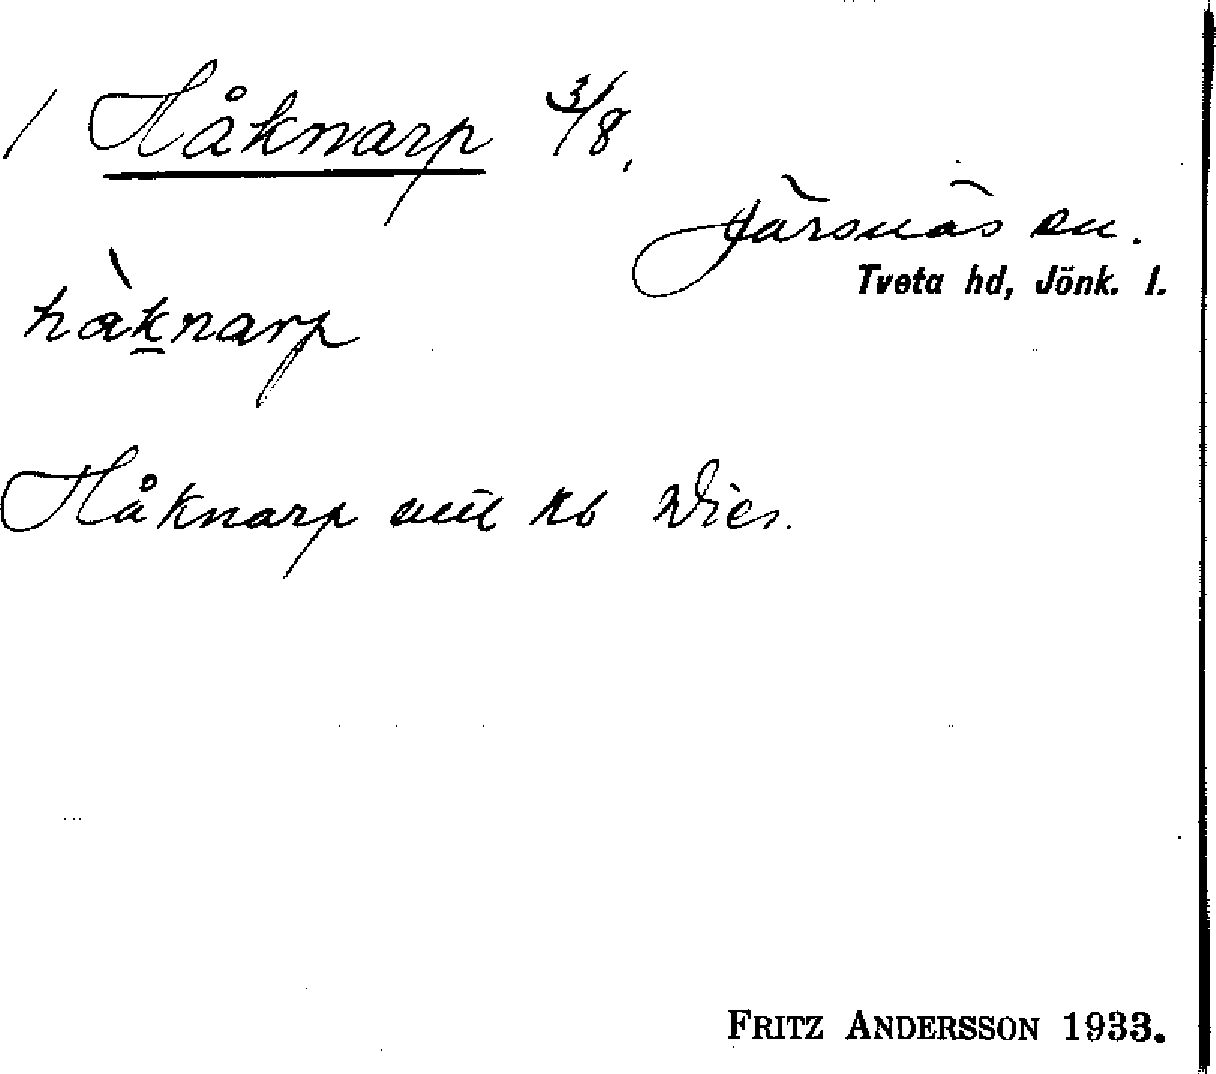 / Håknarp 3/8,
Järsnäs sn.
Tveta hd, Jönk. l.
hàknarp
Håknarp enl kb
FRITZ ANDERSSON 1933.